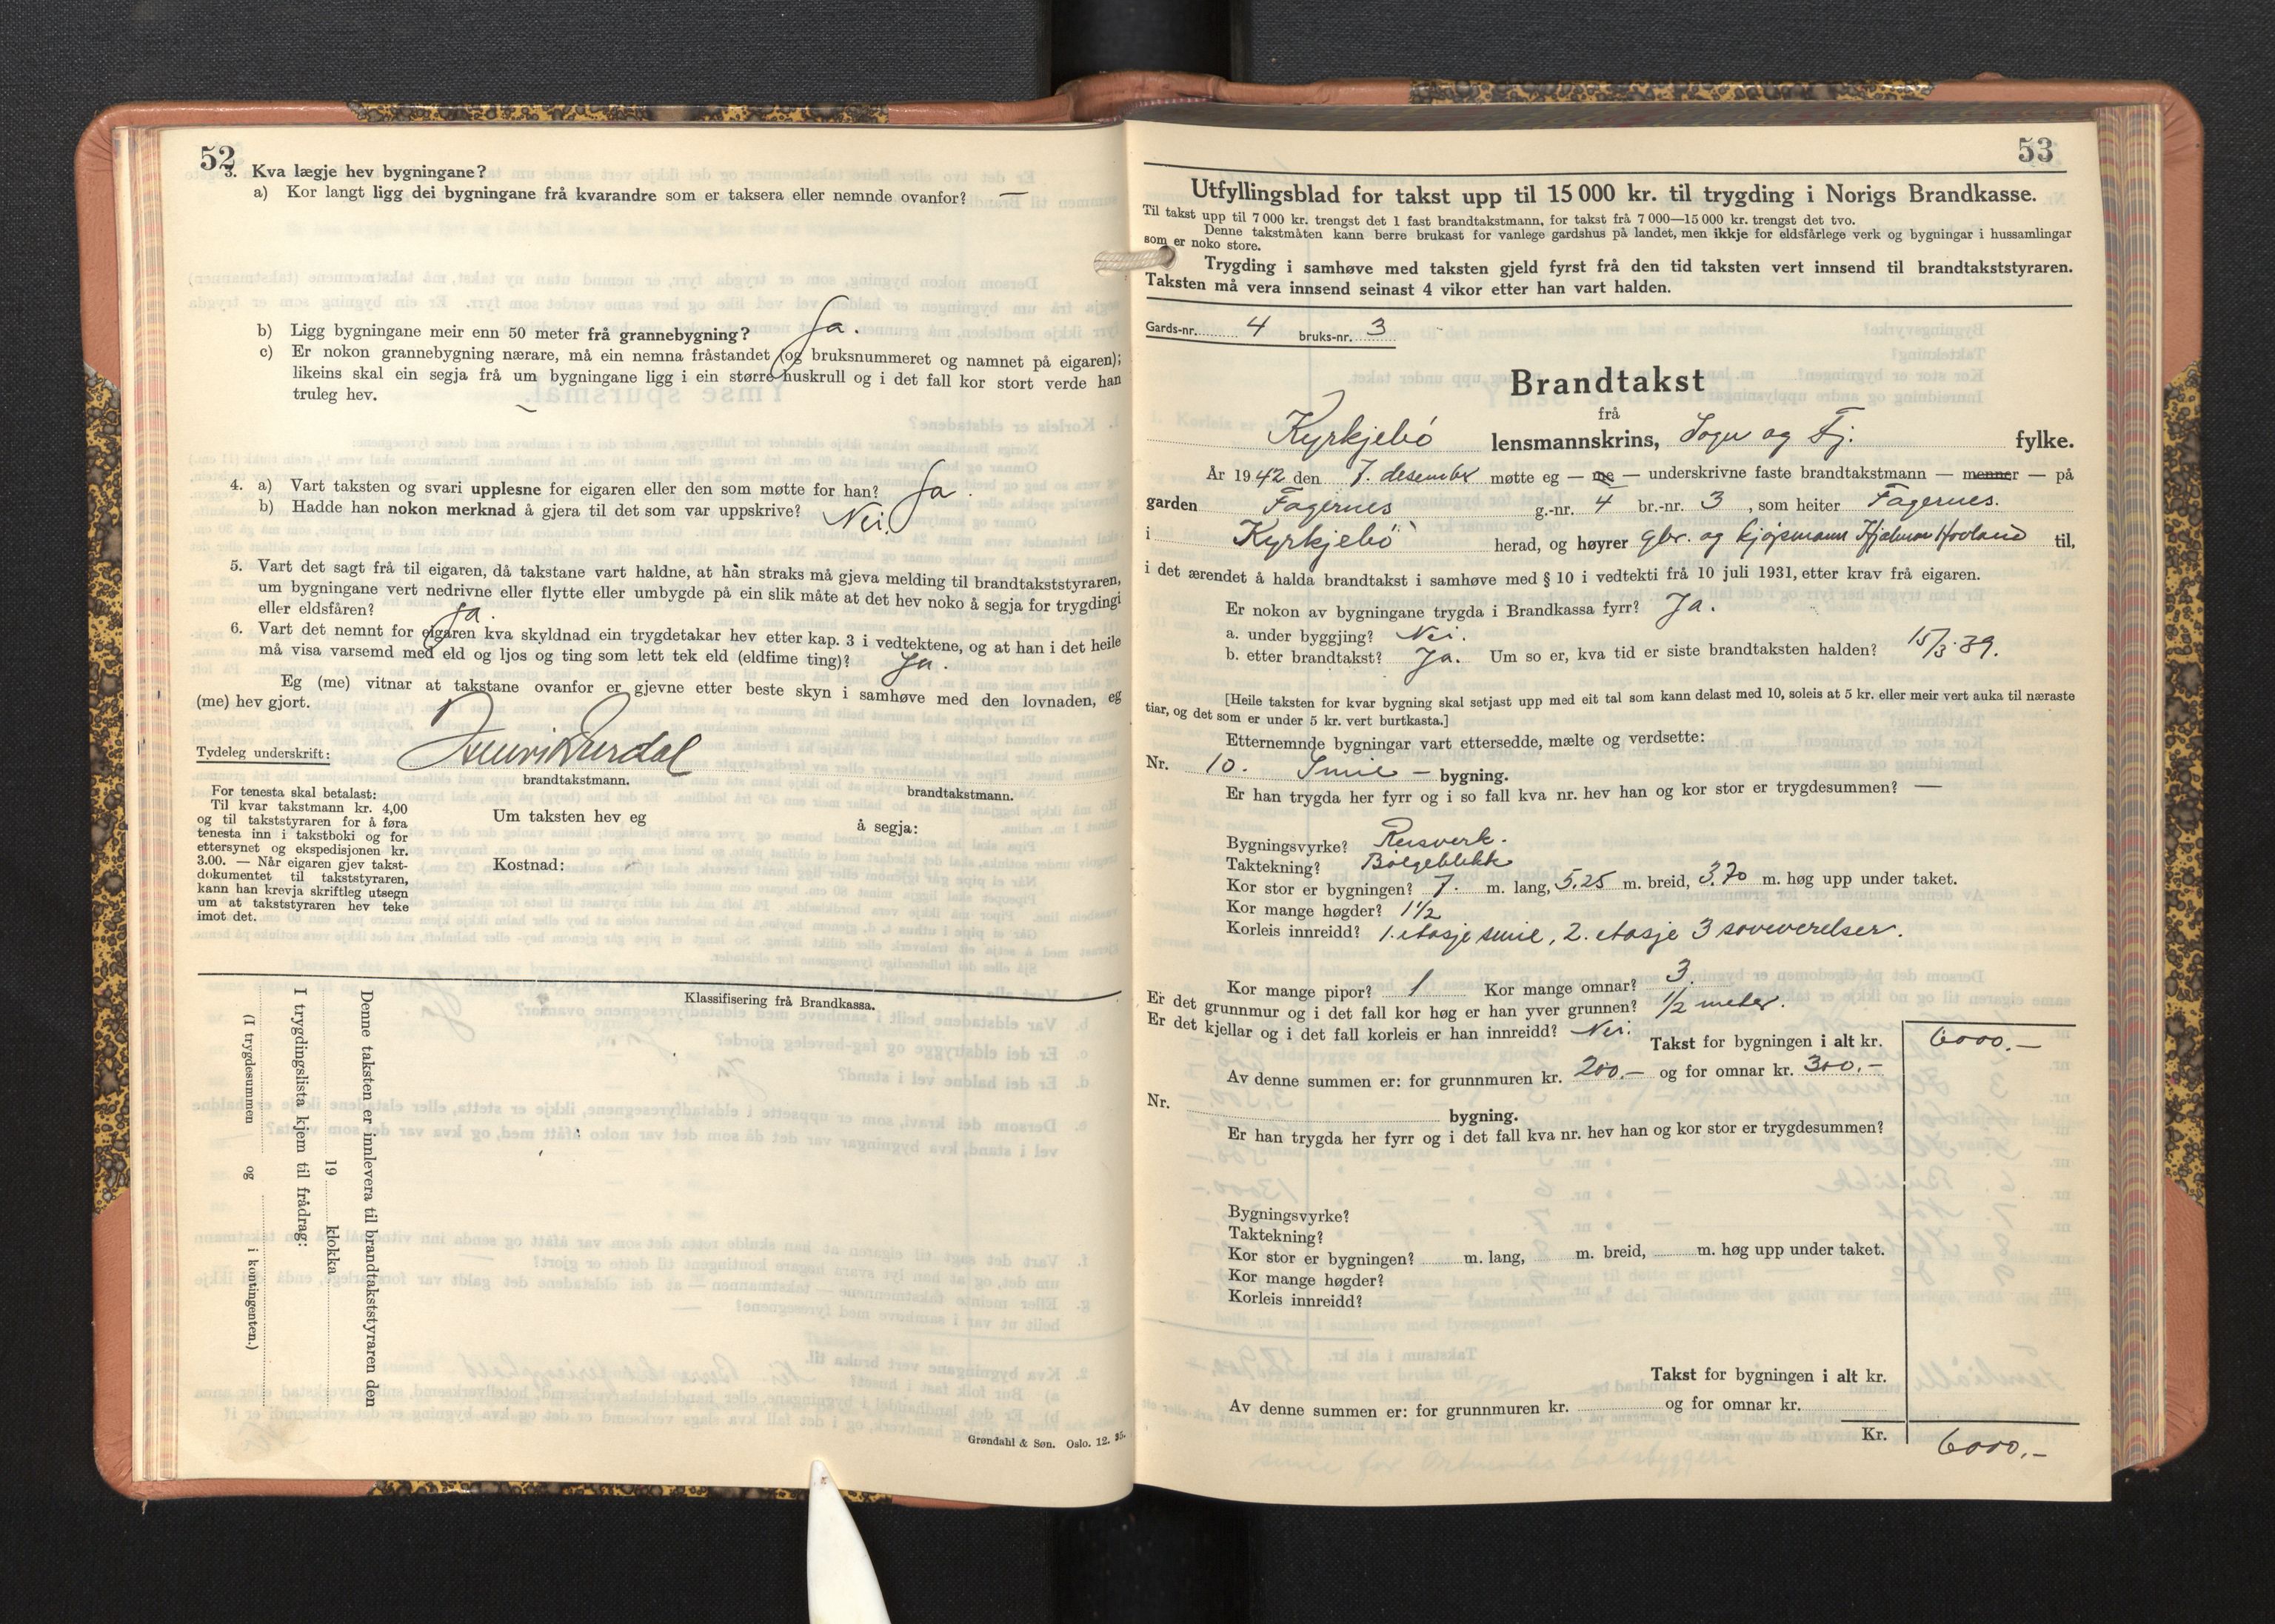 52
3. Kva lægje hev bygningane?
a) Kor langt ligg dei bygningane frå kvarandre som er taksera eller nemnde ovanfor? —
b) Ligg bygningane meir enn 50 meter frå grannebygning? Ja.
c) Er nokon grannebygning nærare, må ein nemna fråstandet (og bruksnummeret og namnet på eigaren);
likeins skal ein segja frå um bygningane ligg i ein større huskrull og i det fall kor stort verde han
truleg hev.
4. a) Vart taksten og svari upplesne for eigaren eller den som møtte for han? Ja.
b) Hadde han nokon merknad å gjera til det som var uppskrive? Nei.
5. Vart det sagt frå til eigaren, då takstane vart haldne, at han straks må gjeva melding til brandtakststyraren,
um bygningane vert nedrivne eller flytte eller umbygde på ein slik måte at det hev noko å segja for trygdingi
eller eldsfåren? Ja.
6. Vart det nemnt for eigaren kva skyldnad ein trygdetakar hev etter kap. 3 i vedtektene, og at han i det heile
må visa varsemd med eld og ljos og ting som lett tek eld (eldfime ting)? Ja.
Eg (me) vitnar at takstane ovanfor er gjevne etter beste skyn i samhøve med den lovnaden, eg
(me) hev gjort.
Tydeleg underskrift:
brandtakstmann.
brandtakstmann.
For tenesta skal betalast:
Til kvar takstmann kr. 4,00
og til takststyraren for å føra
tenesta inn i takstboki og for
ettersynet og ekspedisjonen kr.
3.00. — Når eigaren gjev takst-
dokumentet til takststyraren,
kann han krevja skriftleg utsegn
um at takststyraren hev teke
imot det.
Um taksten hev eg å segja:
Kostnad:
Klassifisering frå Brandkassa.
Denne taksten er innlevera til brandtakststyraren den
19 klokka
I trygdingslista kjem til frådrag:
(I trygdesummen og i kontingenten.)
Grøndahl & Søn. Oslo. 12. 35.
53
Utfyllingsblad for takst upp til 15 000 kr. til trygding i Norigs Brandkasse.
Til takst upp til 7 000 kr. trengst det 1 fast brandtakstmann, for takst frå 7 000—15 000 kr. trengst det tvo.
Denne takstmåten kann berre brukast for vanlege gardshus på landet, men ikkje for eldsfårlege verk og bygningar i hussamlingar
som er noko store.
Trygding i samhøve med taksten gjeld fyrst frå den tid taksten vert innsend til brandtakststyraren.
Taksten må vera innsend seinast 4 vikor etter han vart halden.
Gards-nr. 4 bruks-nr. 3
Brandtakst
frå
Kyrkjebø lensmannskrins, Sogn og Fj. fylke.
År 1942 den 7. desember møtte eg — me — underskrivne faste brandtakstmann — menner — på
garden Fagernes g.-nr. 4 br.-nr. 3, som heiter Fagernes.
i Kyrkjebø herad, og høyrer gbr. og kjøpmann Hjalmar Hovland til,
i det ærendet å halda brandtakst i samhøve med § 10 i vedtekti frå 10 juli 1931, etter krav frå eigaren.
Er nokon av bygningane trygda i Brandkassa fyrr? Ja.
a. under byggjing? Nei.
b. etter brandtakst? Ja. Um so er, kva tid er siste brandtaksten halden? 15/3.39.
[Heile taksten for kvar bygning skal setjast upp med eit tal som kann delast med 10, soleis at 5 kr. eller meir vert auka til næraste
tiar, og det som er under 5 kr. vert burtkasta.]
Etternemnde bygningar vart ettersedde, mælte og verdsette:
Nr. 10. Smie — bygning.
Er han trygda her fyrr og i so fall kva nr. hev han og kor stor er trygdesummen? —
Bygningsvyrke? Reisverk.
Taktekning? Bølgeblikk
Kor stor er bygningen? 7. m. lang, 5.25 m. breid, 3.70 m. høg upp under taket.
Kor mange høgder? 1½
Korleis innreidd? 1. etasje smie, 2. etasje 3 soveverelser.
Kor mange pipor? 1 Kor mange omnar? 3.
Er det grunnmur og i det fall kor høg er han yver grunnen? 1/2 meter.
Er det kjellar og i det fall korleis er han innreidd? Nei.
Takst for bygningen i alt kr. 6000.—
Av denne summen er: for grunnmuren kr. 200.— og for omnar kr. 300.—
Nr. bygning.
Er han trygda her fyrr og i det fall kva nr. hev han og kor stor er trygdesummen?
Bygningsvyrke?
Taktekning?
Kor stor er bygningen? m. lang, m. breid, m. høg upp under taket.
Kor mange høgder?
Korleis innreidd?
Takst for bygningen i alt kr.
Av denne summen er: for grunnmuren kr. og for omnar kr.
Kr. 6000.—